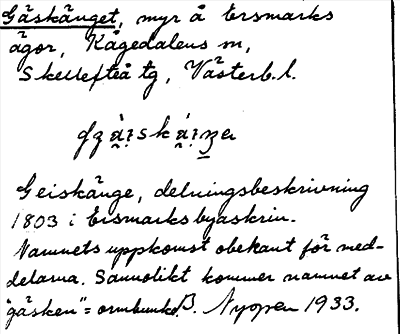 Gäskänget, myr å Ersmarks
ägor, Kågedalens m,
Skellefteå tg, Västerb. l.
Geiskänge, delningsbeskrivning
1803 i Ersmarks byaskrin.
Namnets uppkomst obekant för med-
delarna. Sannolikt kommer namnet av
"gäsken" = ormbunke B. Nyppen 1933.